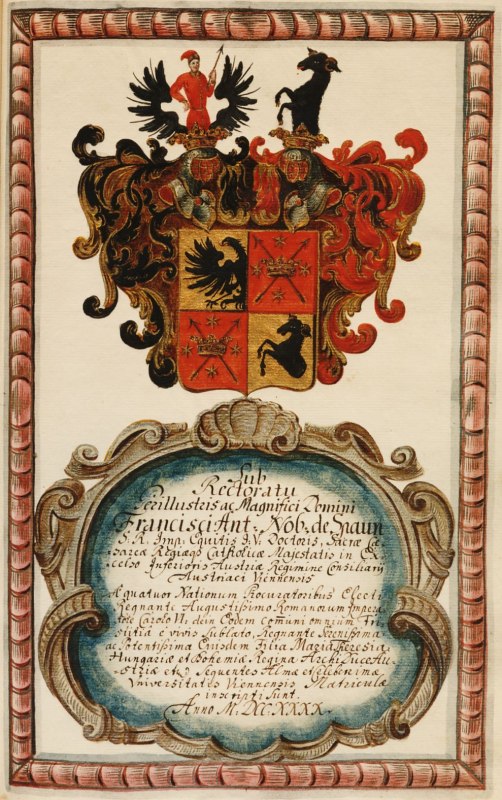 Sub
Rectoratu
Perillustris ac Magnifici Domini
Francisci Ant: Nob. de Spaun
S. R. Imp. Equitis J. V. Doctoris, Sacræ Cæ
sareæ Regiæq3 Catholicæ Majestatis in Ex
celso Inferioris Austriæ Regimine Consiliarij
Austriaci Viennensis
A quatuor Nationum Procuratoribus Electi
Regnante Augustissimo Romanorum Impera
tore Carolo VI, dein Eodem comuni omnium Tri
stitia e vivis sublato, Regnante Serenissima
ac Potentissima Ejusdem Filia Maria Theresia
Hungariæ et Bohemiæ Regina Archi Duce Au-
striæ etc. Sequentes Almæ et celeberrimæ
Universitatis Viennensis Matriculæ
inscripti sunt.
Anno M. DCC. XXXX.